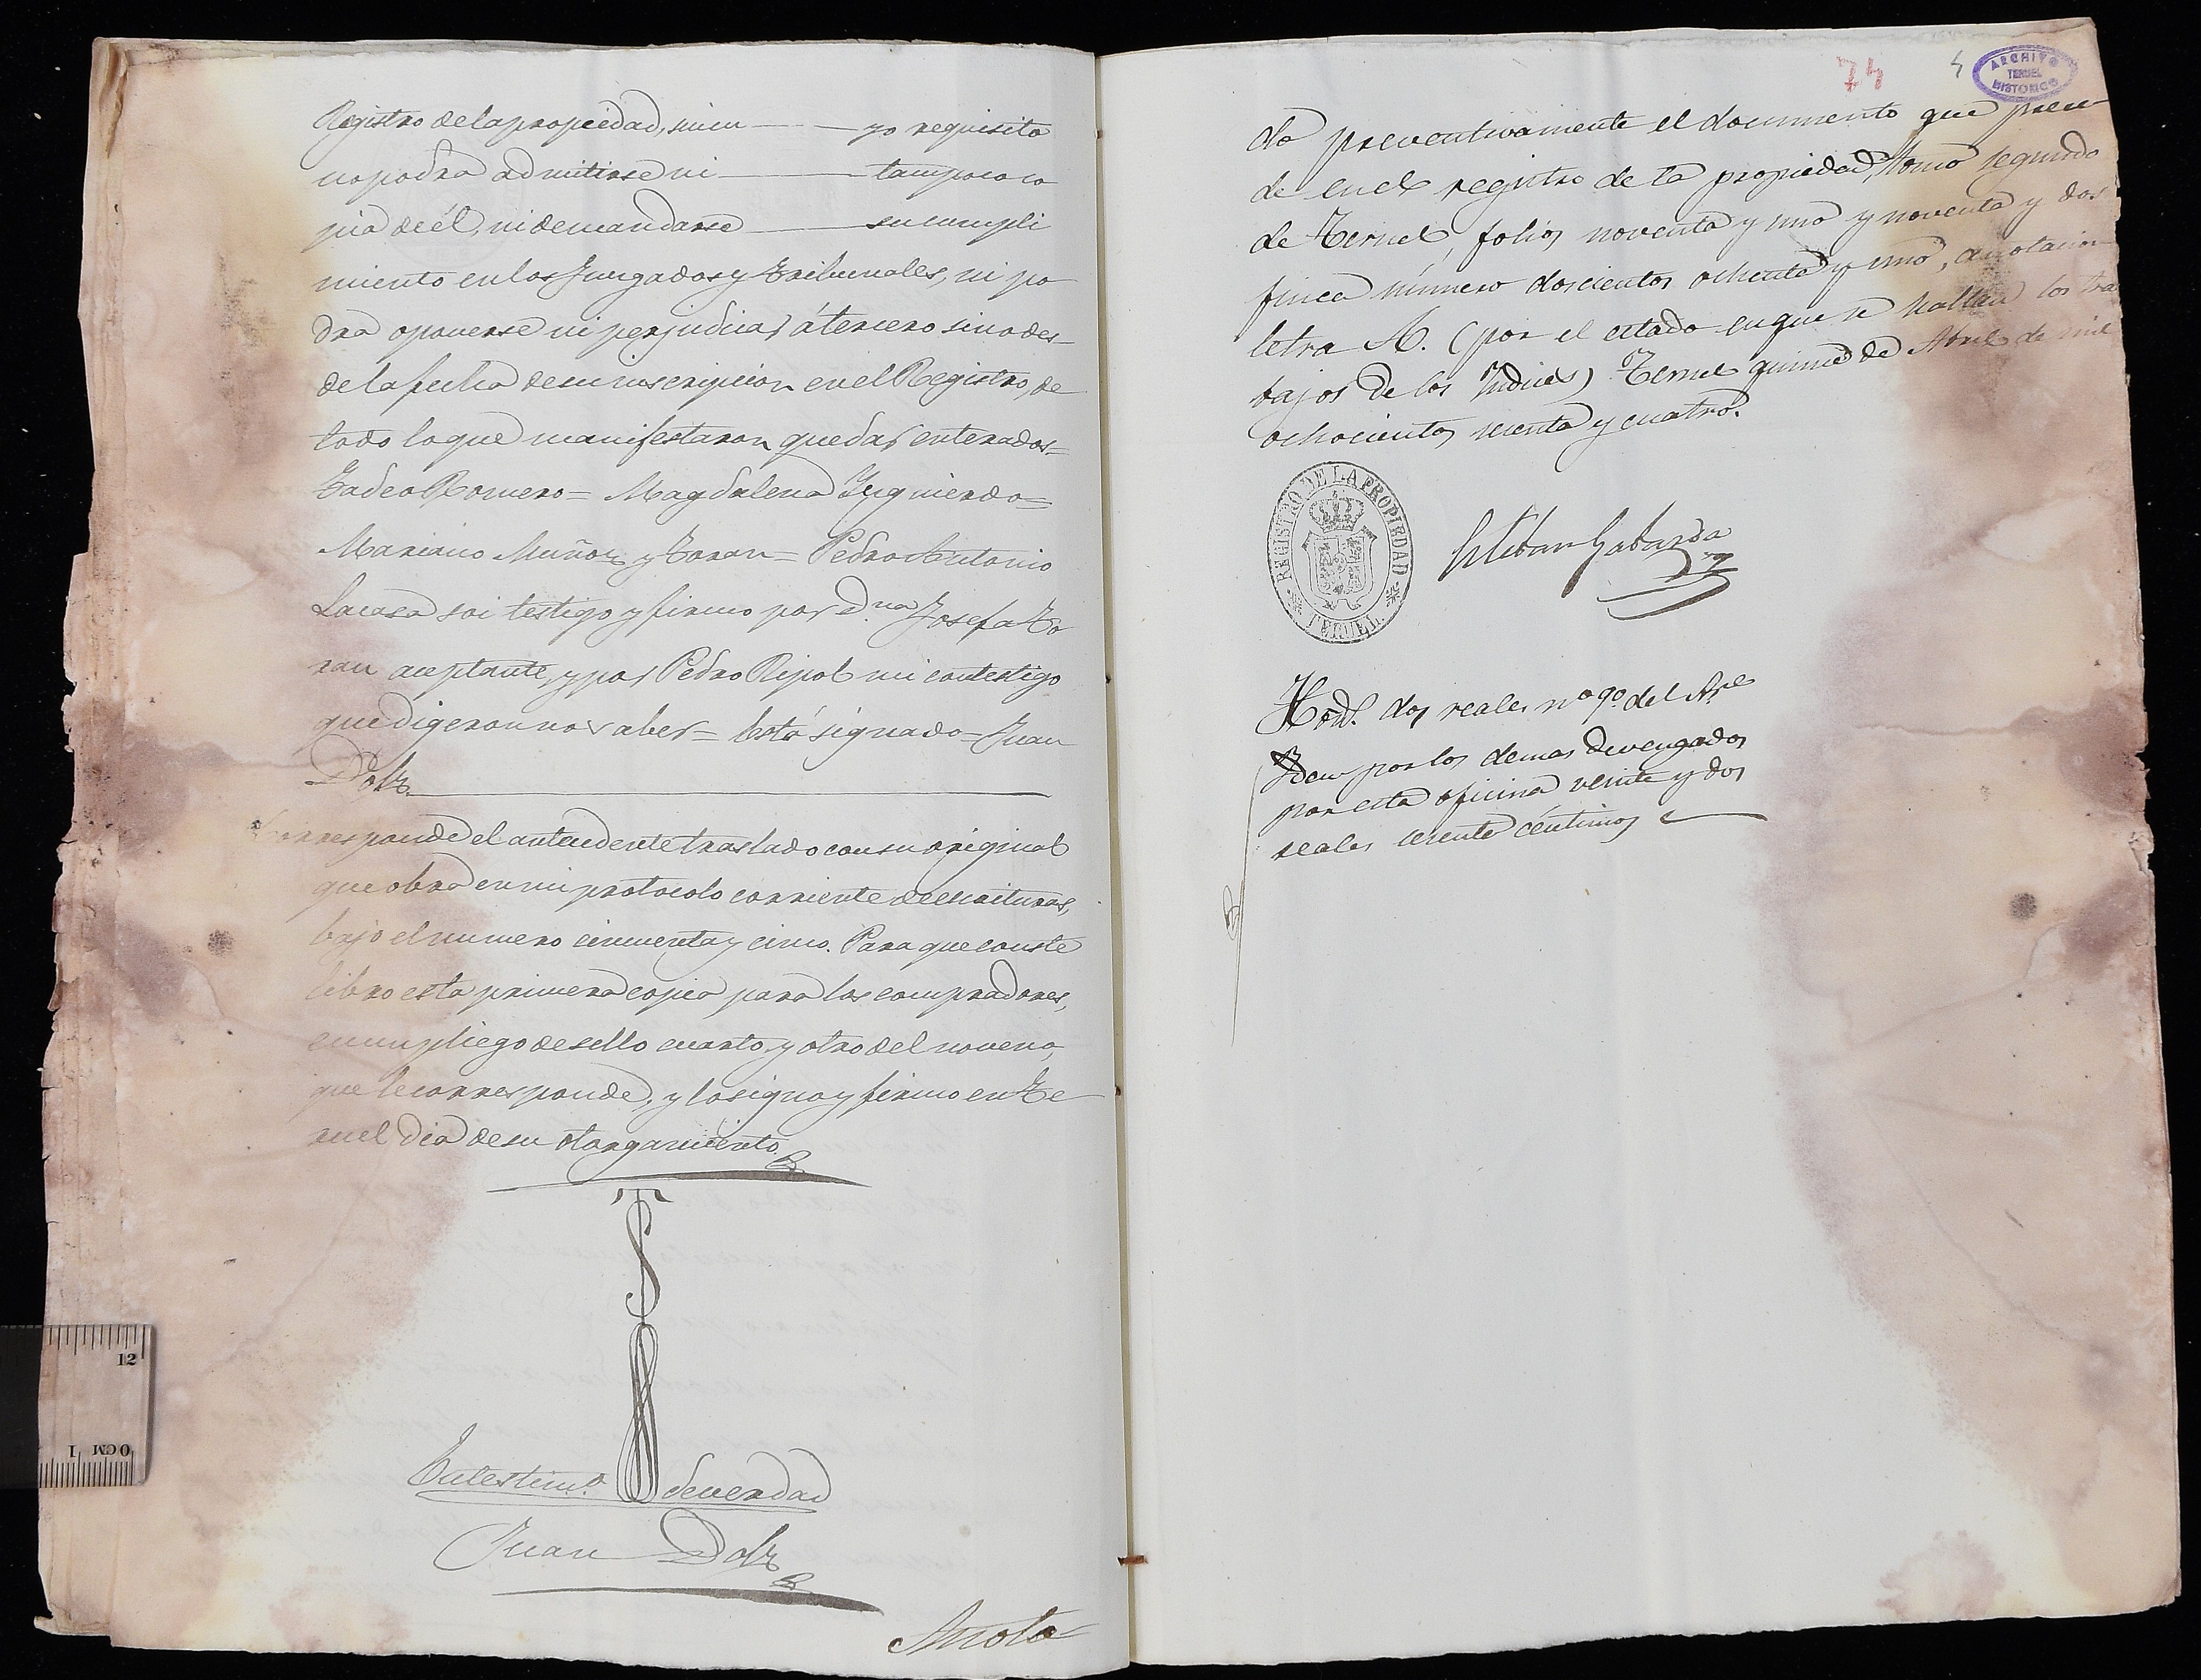 Registro de la propiedad, sin cu——yo requisito
no podra admitirse ni——tampoco co
pia de él, ni demandarse——su cumpli
miento en los Juzgados y Tribunales, ni po
dra oponerse ni perjudicar á tercero sino des-
de la fecha de su inscripcion en el Registro, de
todo lo que manifestaron quedar enterados=
Tadeo Romero= Magdalena Yzquierdo=
Mariano Muñoz y Toran= Pedro Antonio
Lacasa soi testigo y firmo por D.ña Josefa To
ran aceptante, y por Pedro Ripol mi contestigo
que digeron no saber= Está signado= Juan
Dolz.
Corresponde el antecedente traslado con su original
que obra en mi protocolo corriente de escrituras,
bajo el numero cincuenta y cinco. Para que conste
libro esta primera copia para los compradores,
en un pliego de sello cuarto y otro del noveno,
que le corresponde, y lo signo y firmo en Te
ruel dia de su otorgamiento.
En testim.o de verdad
Juan Dolz
Anota-
74 4
ARCHIVO
TERUEL
HISTORICO
do preventivamente el documento que prece-
de en el registro de la propiedad, tomo segundo
de Teruel, folios noventa y uno y noventa y dos
finca número doscientos ochenta y uno, anotacion
letra A. (por el estado en que se hallan los tra
bajos de los Yndices) Teruel quince de Abril de mil
ochocientos sesenta y cuatro.
REGISTRO DE LA PROPIEDAD
TERUEL
Esteban Gabarda
Hon.s dos reales nº 9º del Ar.l
Ydem por los demas devengados
por esta oficina veinte y dos
reales sesenta céntimos